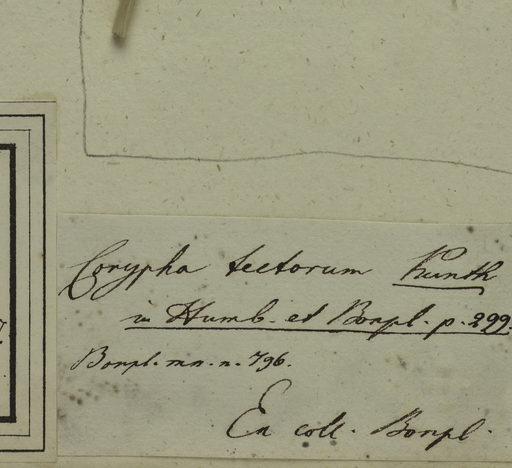 Corypha tectorum Kunth
in Humb. et Bonpl. p. 299.
Bonpl. mn. n. 796.
Ex coll. Bonpl.